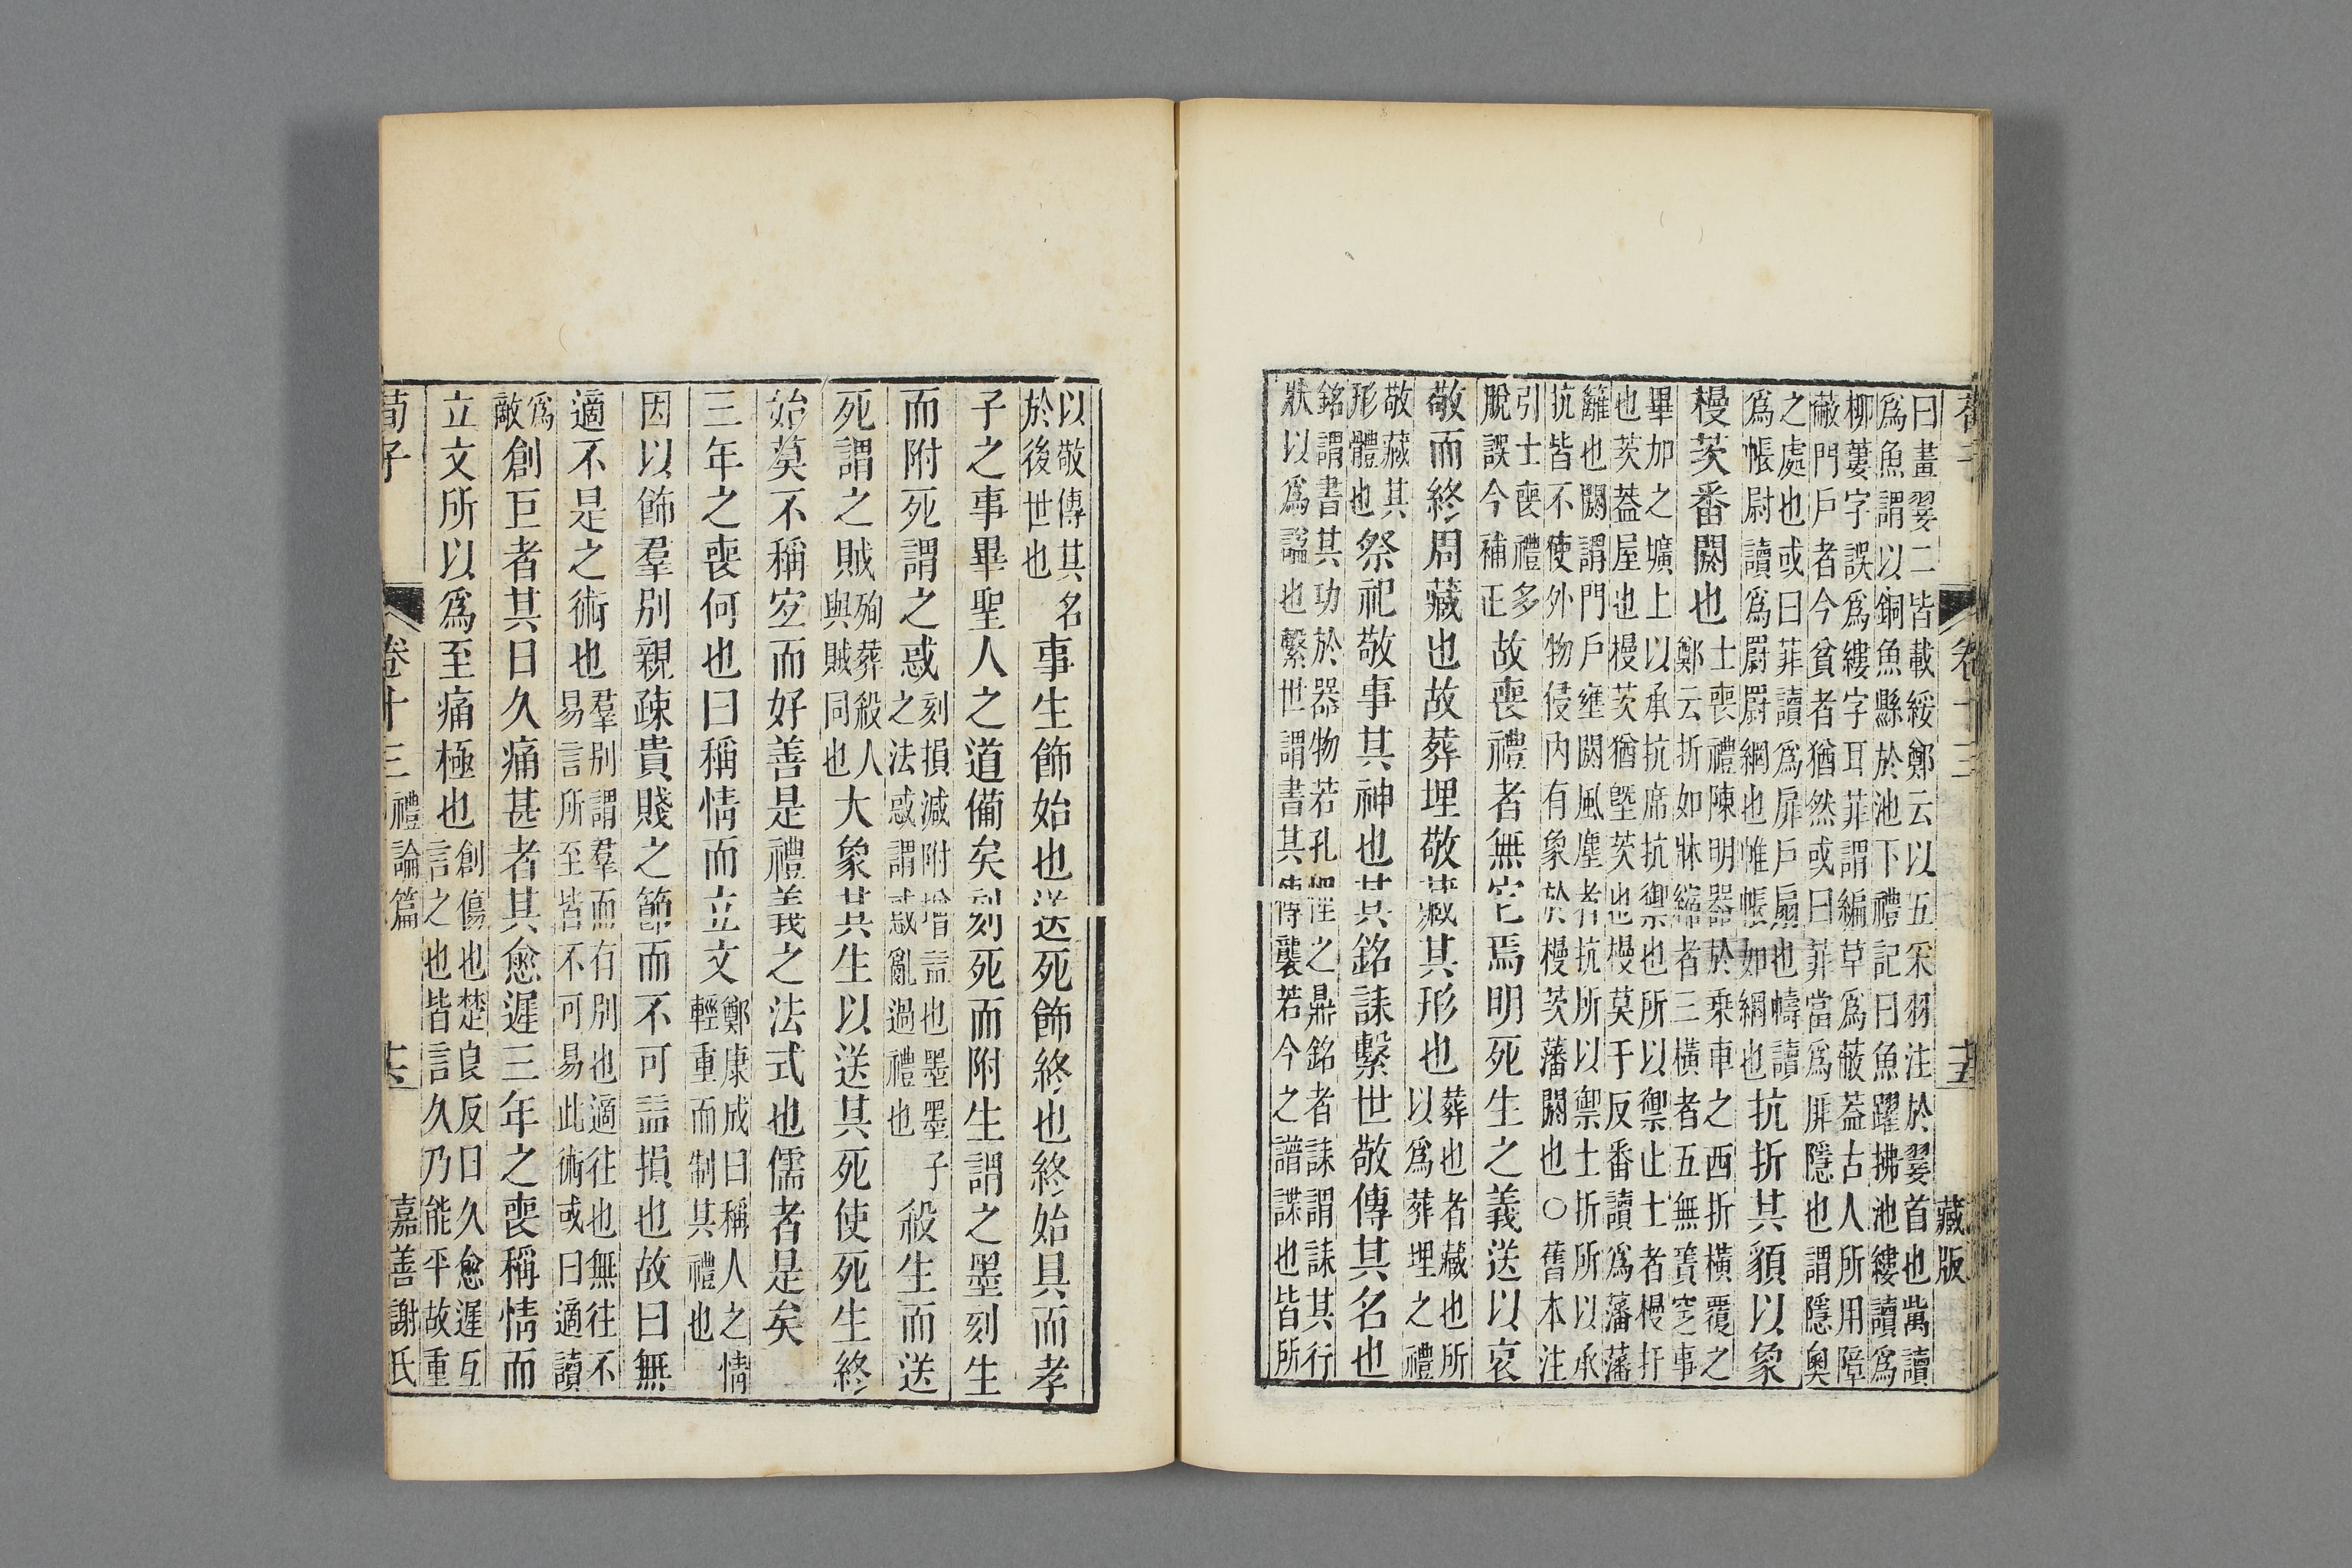 荀子 卷十三 十五 藏版
曰畫翣二皆載綏鄭云以五采羽注於翣首也萭讀
爲魚謂以銅魚縣於池下禮記曰魚躍拂池縷讀爲
柳蔞字誤爲縷字耳菲謂編草爲蔽葢古人所用障
蔽門戶者今貧者猶然或曰菲當爲厞隱也謂隱奧
之處也或曰菲讀爲扉戶扇也幬讀
爲帳尉讀爲罻罻網也帷帳如網也抗折其䫉以象
槾茨番閼也士喪禮陳明器於乗車之西折橫覆之
鄭云折如牀縮者三橫者五無簀窆事
畢加之壙上以承抗席抗禦也所以禦止士者槾扞
也茨葢屋也槾茨猶塈茨也槾莫干反番讀爲藩藩
籬也閼謂門戶壅閼風塵者抗所以禦士折所以承
抗皆不使外物侵內有象於槾茨藩閼也○舊本注
引士喪禮多
脫誤今補正故喪禮者無它焉明死生之義送以哀
敬而終周藏也故葬埋敬藏其形也葬也者藏也所
以爲葬埋之禮
敬藏其
形體也祭祀敬事其神也其銘誄繫世敬傳其名也
銘謂書其功於器物若孔悝之鼎銘者誄謂誄其行
狀以爲謚也繫世謂書其傳襲若今之譜諜也皆所
以敬傳其名
於後世也事生飾始也送死飾終也終始具而孝
子之事畢聖人之道備矣刻死而附生謂之墨刻生
而附死謂之惑刻損減附增益也墨墨子
之法惑謂惑亂過禮也殺生而送
死謂之賊殉葬殺人
與賊同也大象其生以送其死使死生終
始莫不稱宜而好善是禮義之法式也儒者是矣
三年之喪何也曰稱情而立文鄭康成曰稱人之情
輕重而制其禮也
因以飾羣別親疎貴賤之節而不可益損也故曰無
適不是之術也羣別謂羣而有別也適往也無往不
易言所至皆不可易此術或曰適讀
爲
敵創巨者其日久痛甚者其愈遲三年之喪稱情而
立文所以爲至痛極也創傷也楚良反日久愈遲互
言之也皆言久乃能平故重
荀子 卷十三 禮論篇 十六 嘉善謝氏